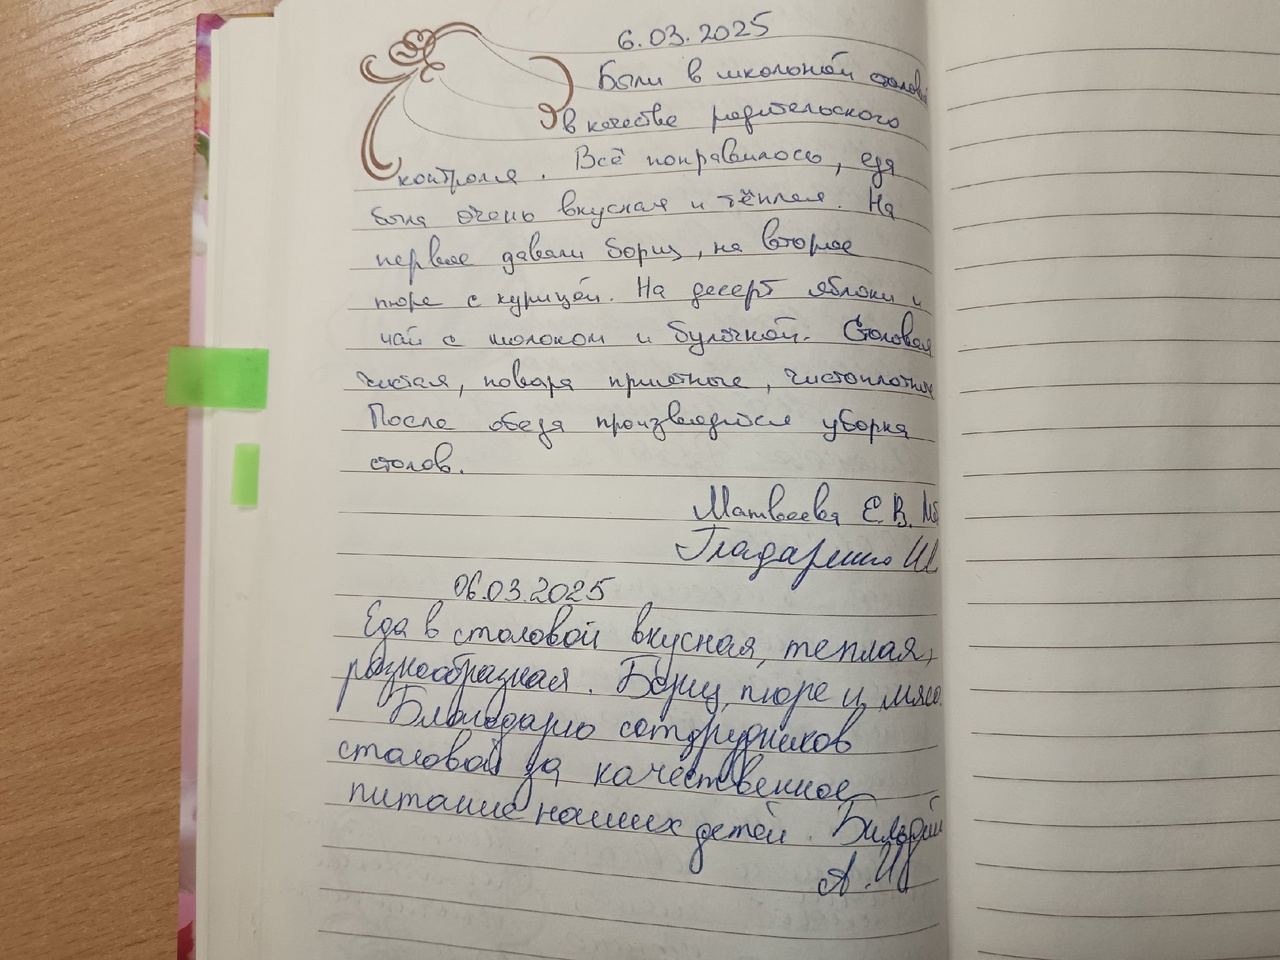 6.03.2025
Были в школьной столовой
в качестве родительского
контроля. Всё понравилось, еда
была очень вкусная и тёплая. На
первое давали борщ, на второе
пюре с курицей. На десерт яблоки и
чай с молоком и булочкой. Столовая
чистая, повара приятные, чистоплотные
После обеда производится уборка
столов.
Матвеева Е.В.
Гладаренко
06.03.2025
Еда в столовой вкусная, теплая,
разнообразная. Борщ, пюре и мясо.
Благодарю сотрудников
столовой за качественное
питание наших детей.
А.И